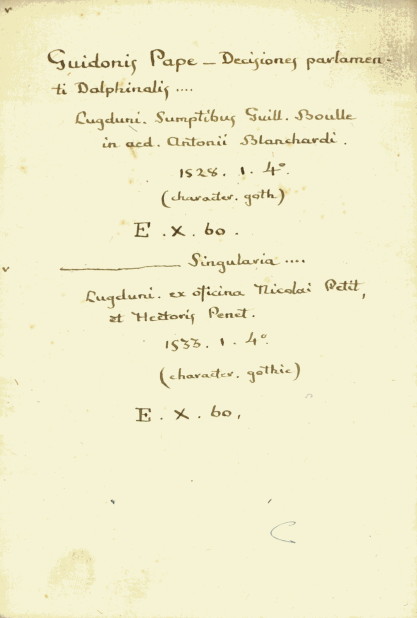 Guidonis Pape — Decisiones parlamen-
ti Dalphinalis ....
Lugduni. Sumptibus Guill. Boulle
in aed. Antonii Blanchardi.
1528. 1. 4°.
(character. goth)
E. X. 60.
———— Singularia ....
Lugduni. ex officina Nicolai Petit,
et Hectoris Penet.
1533. 1. 4°.
(character. gothic)
E. X. 60,